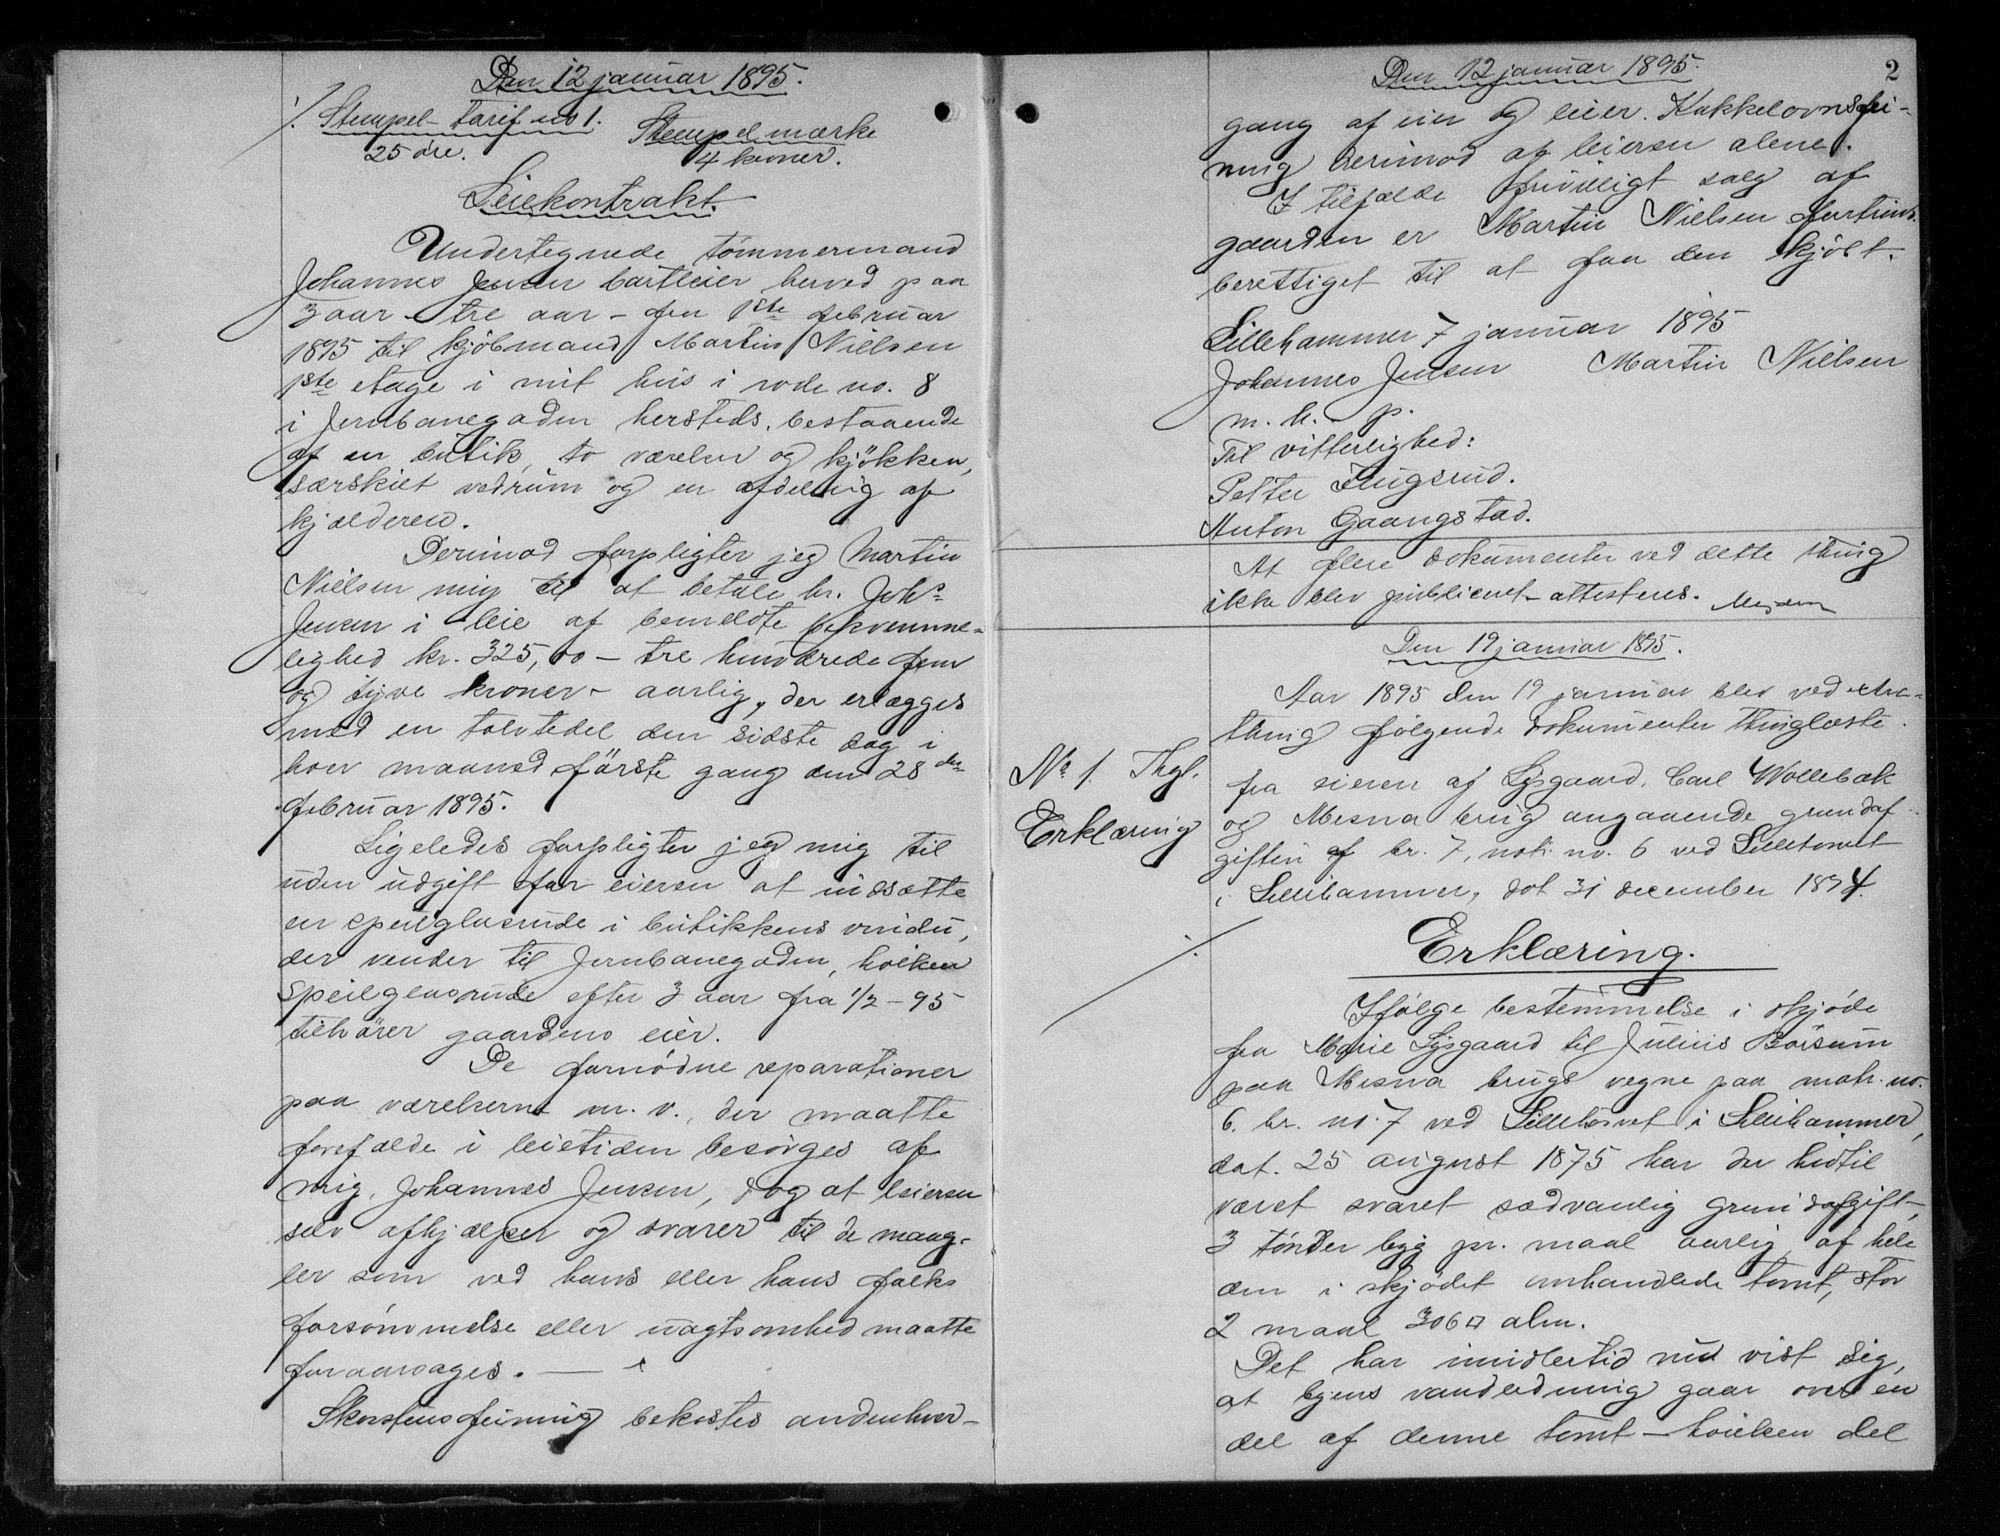 Den 12 januar 1895.
Stempel-Tarif no 1.
25 øre.
Stempelmærke
4 kroner.
Leiekontrakt.
Undertegnede tømmermand
Johannes Jensen bortleier herved paa
3 aar - tre aar - fra 1ste februar
1895 til kjøbmand Martin Nielsen
1ste etage i mit hus i rode no. 8
i Jernbanegaden hersteds, bestaaende
af en butik, to værelser og kjökken,
særskilt vedrum og en afdeling af
kjælderen.
Derimod forpligter jeg Martin
Nielsen mig til at betale hr. Johs
Jensen i leie af bemeldte bekvemme-
lighed kr. 325,00 - tre hundrede fem
og tyve kroner - aarlig, der erlægges
med en tolvtedel den sidste dag i
hver maaned förste gang den 28de
februar 1895.
Ligeledes forpligter jeg mig til
uden udgift for eieren at indsætte
en speilglasrude i butikkens vindu,
der vender til Jernbanegaden, hvilken
speilglasrude efter 3 aar fra 1/2-95
tilhører gaardens eier.
De fornødne reparationer
paa værelserne m. v., der maatte
forefalde i leietiden besørges af
mig, Johannes Jensen, dog at leieren
selv afhjælper og svarer til de mang-
ler som ved hans eller hans folks
forsømmelse eller uagtsomhed maatte
foraarsages.
Skorstensfeining bekostes andenhver-
Den 12 januar 1895.
2
gang af eier og leier. Kakkelovnsfei-
ning derimod af leieren alene.
I tilfælde frivilligt salg af
gaarden er Martin Nielsen fortrins-
berettiget til at faa den kjøbt.
Lillehammer 7 januar 1895
Johannes Jensen Martin Nielsen
m. h. p.
Til vitterlighed:
Petter
Anton Gaangstad.
At flere dokumenter ved dette thing
ikke blev publiceret attesteres.
Den 19 januar 1895.
Aar 1895 den 19 januar blev ved extra-
thing følgende dokumenter thinglæste.
No 1. Thgl.
Erklæring
fra eieren af Lysgaard, Carl Wollebæk
og Mesna brug angaaende grundaf-
giften af br. 7, matr. no. 6 ved Lilletorvet
i Lillehammer, dat 31 december 1894.
Erklæring.
Ifølge bestemmelse i skjøde
fra Marie Lysgaard til Julius Børsum
paa Mesna brugs vegne paa matr. no.
6. br. no. 7 ved Lilletorvet i Lillehammer,
dat. 25 august 1875 har der hidtil
været svaret sædvanlig grundafgift,
3 tønder byg pr. maal aarlig af hele
den i skjødet omhandlede tomt, stor
2 maal 306 □ alm.
Det har imidlertid nu vist sig,
at byens vandledning gaar over en
del af denne tomt - hvilken del